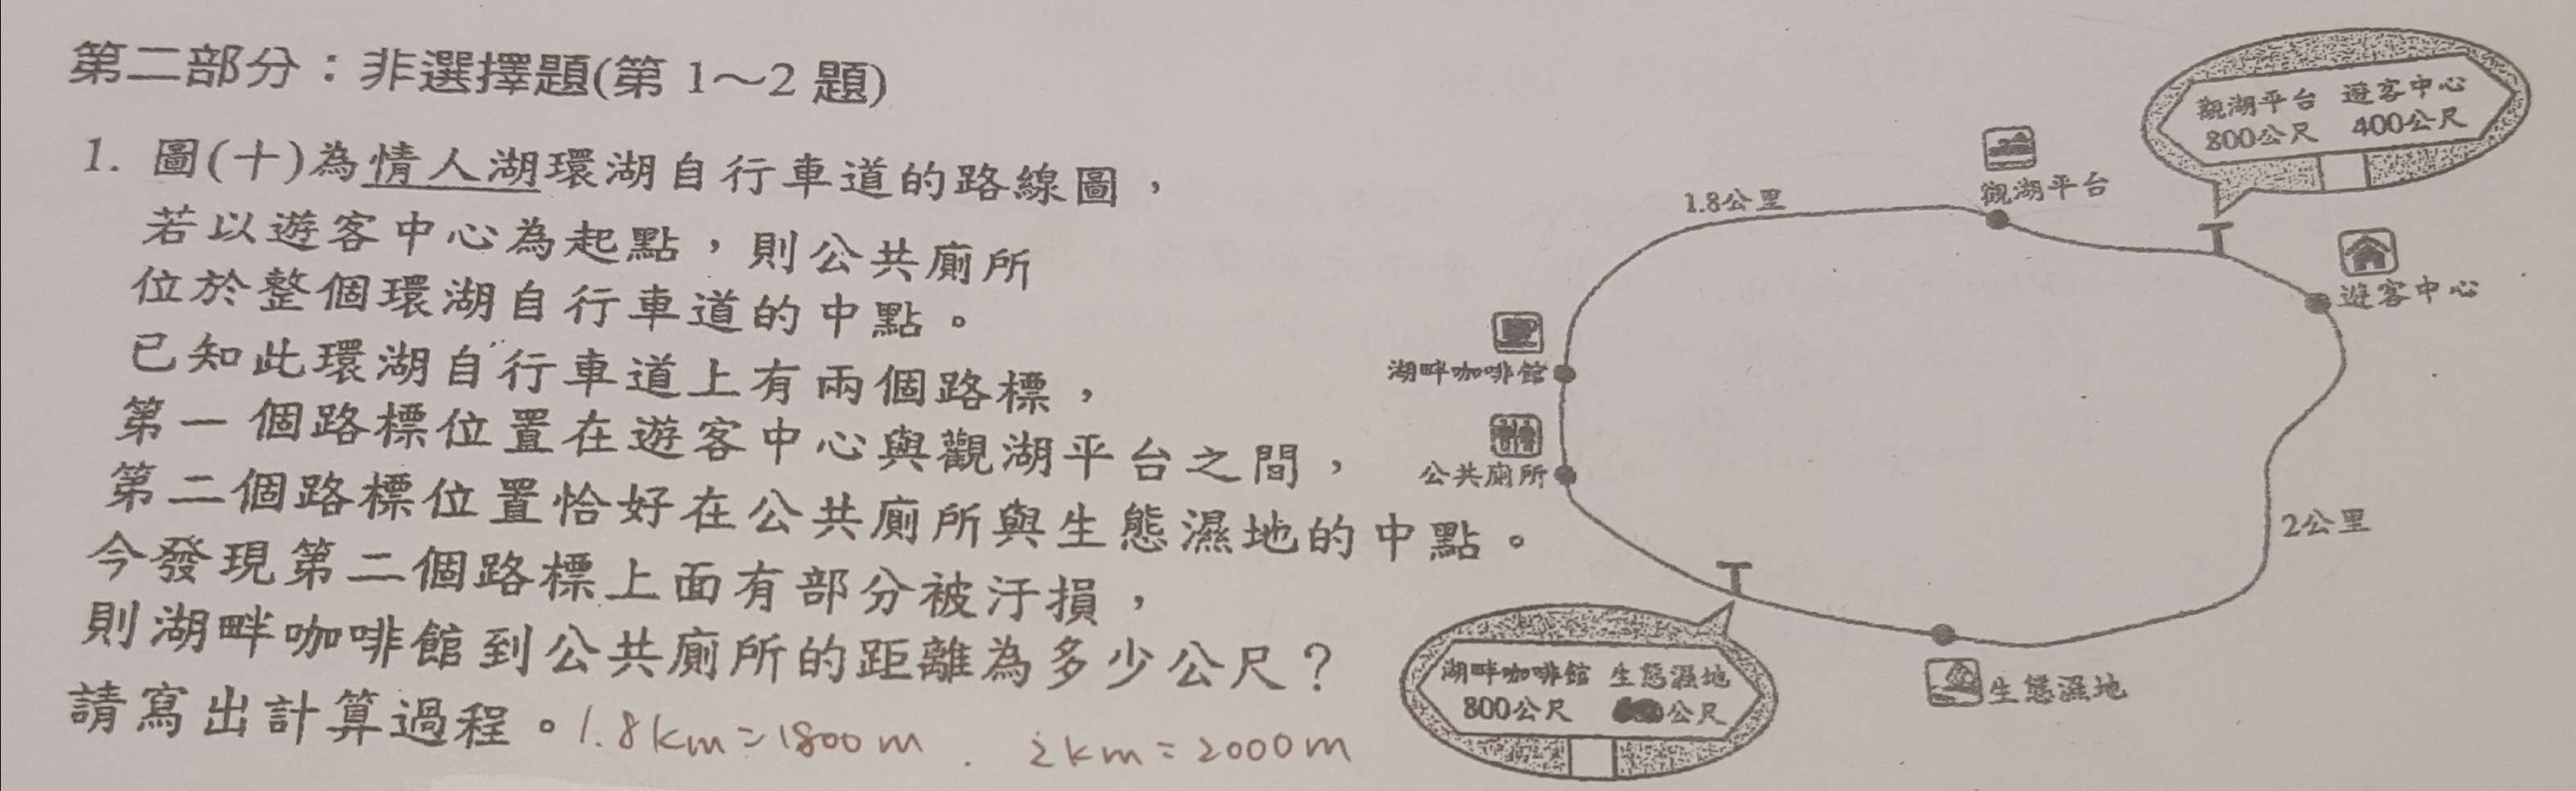 第二部分：非選擇題(第 1～2 題)
1. 圖(十)為情人湖環湖自行車道的路線圖，
若以遊客中心為起點，則公共廁所
位於整個環湖自行車道的中點。
已知此環湖自行車道上有兩個路標，
第一個路標位置在遊客中心與觀湖平台之間，
第二個路標位置恰好在公共廁所與生態濕地的中點。
今發現第二個路標上面有部分被汙損，
則湖畔咖啡館到公共廁所的距離為多少公尺？
請寫出計算過程。1.8km=1800m . 2km=2000m
觀湖平台 遊客中心
800公尺 400公尺
觀湖平台
1.8公里
遊客中心
湖畔咖啡館
公共廁所
2公里
湖畔咖啡館 生態濕地
800公尺 公尺
生態濕地